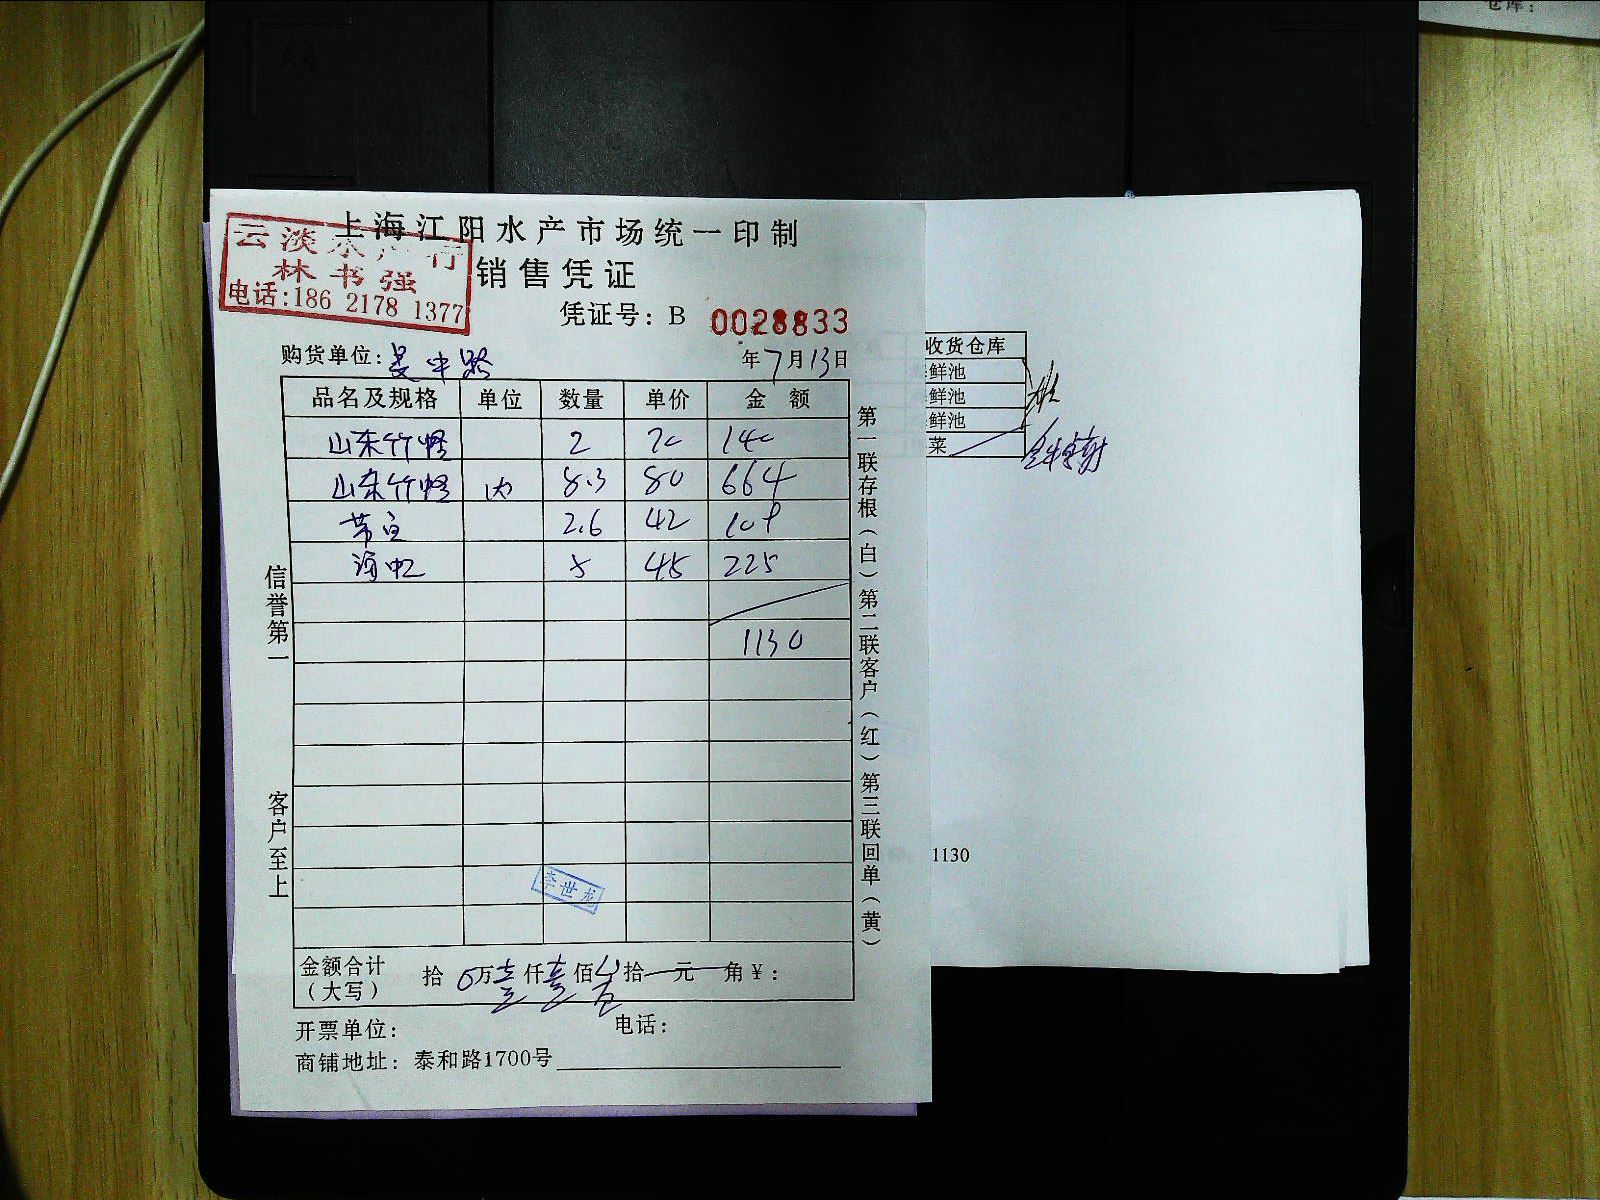 仓库：
A4
上海江阳水产市场统一印制
云淡水产行
林书强
电话:186 2178 1377
销售凭证
凭证号：B 0028833
购货单位: 吴中路
年7月13日
品名及规格 单位 数量 单价 金额
山东竹蛏 2 70 140
山东竹蛏 8.3 80 664
2.6 42 109
5 45 225
1130
信誉第一
客户至上
第一联存根（白）第二联客户（红）第三联回单（黄）
李世龙
金额合计（大写） 拾 0万壹仟壹佰 拾 元 角￥：
开票单位：
电话：
商铺地址：泰和路1700号
收货仓库
鲜池
鲜池
鲜池
菜
1130